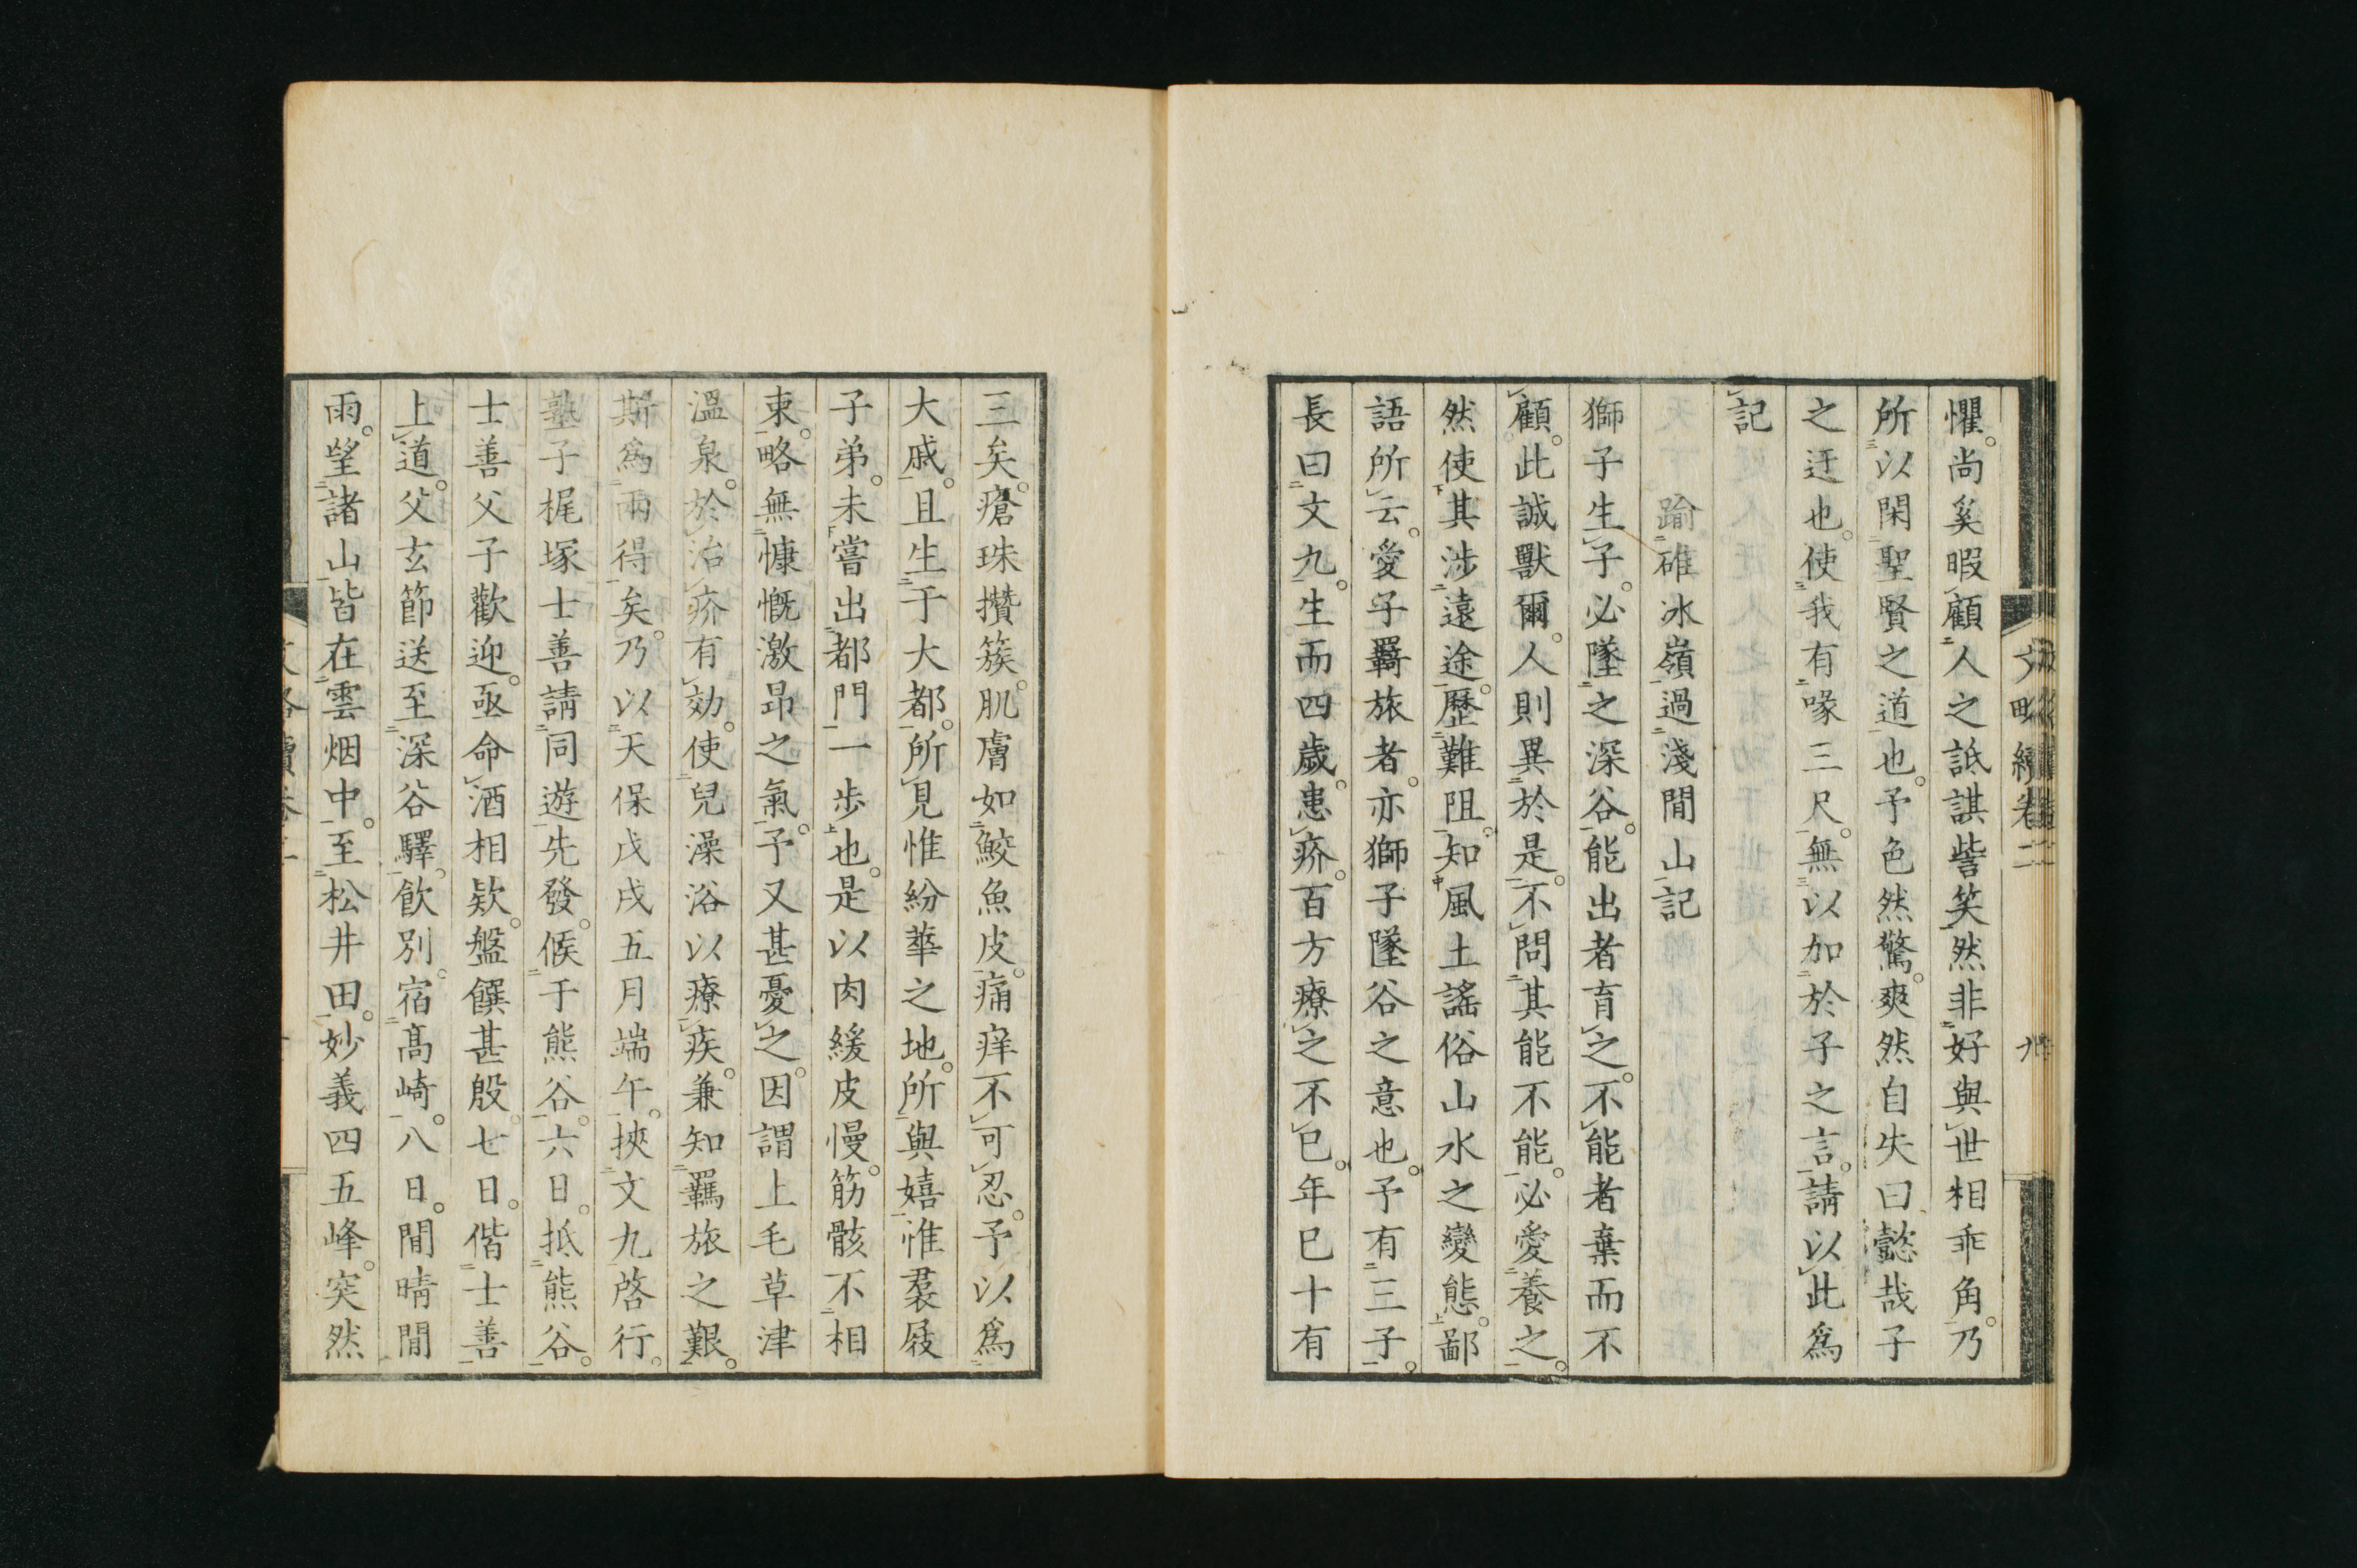 懼。尚奚暇顧人之詆諆訾笑然非好與世相乖角。乃
所以閑聖賢之道也。予色然驚。爽然自失曰懿哉子
之迂也。使我有喙三尺。無以加於子之言。請以此為
記
踰碓冰嶺過淺間山記
獅子生子。必墜之深谷。能出者育之。不能者棄而不
顧。此誠獸爾。人則異於是。不問其能不能。必愛養之。
然使其涉遠途。歷難阻。知風土謠俗山水之變態。鄙
語所云。愛子羇旅者。亦獅子墜谷之意也。予有三子。
長曰文九。生而四歲。患疥。百方療之不已。年已十有
文略續卷二
九
三矣。瘡珠攢簇。肌膚如鮫魚皮。痛痒不可忍。予以為
大戚。且生于大都。所見惟紛華之地。所與嬉惟裙屐
子弟。未嘗出都門一步也。是以肉緩皮慢。筋骸不相
束。略無慷慨激昂之氣。予又甚憂之。因謂上毛草津
溫泉。於治疥有効。使兒澡浴以療疾。兼知羈旅之艱。
斯為兩得矣。乃以天保戊戌五月端午。挾文九啓行。
塾子梶塚士善請同遊先發。候于熊谷。六日。抵熊谷。
士善父子歡迎。亟命酒相欵。盤饌甚殷。七日。偕士善
上道。父玄節送至深谷驛。飲別。宿高崎。八日。間晴間
雨。望諸山皆在雲烟中。至松井田。妙義四五峰。突然